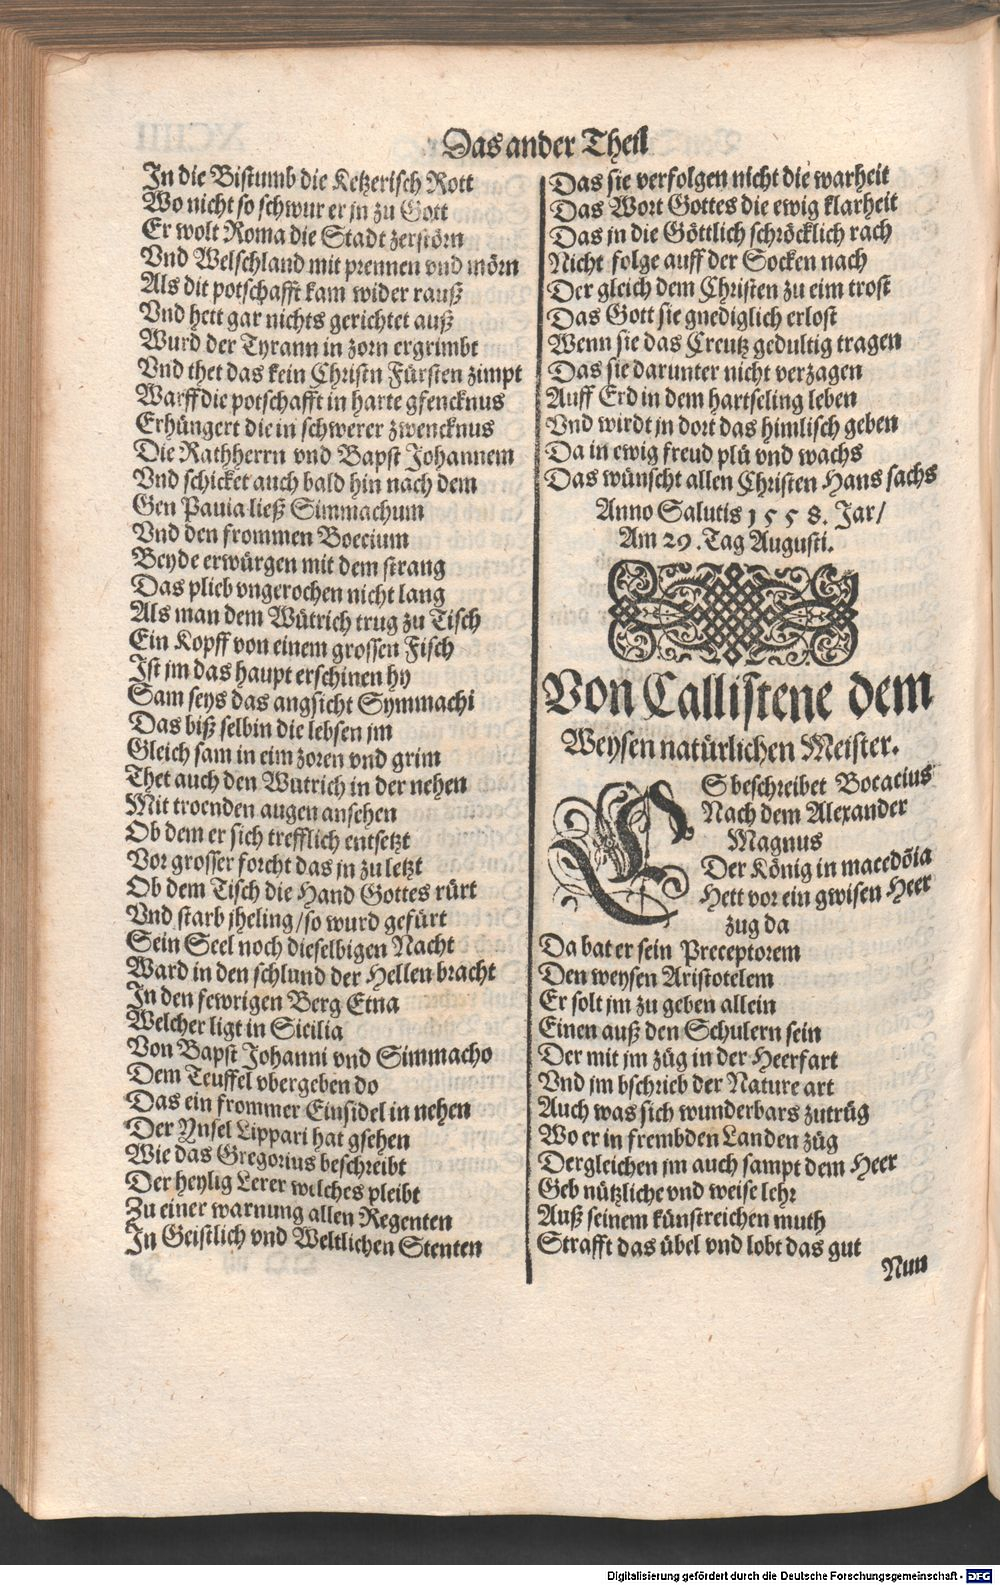 Das ander Theil
In die Bistumb die Ketzerisch Rott
Wo nicht so schwur er jn zu Gott
Er wolt Roma die Stadt zerstörn
Vnd Welschland mit prennen vnd mörn
Als dit potschafft kam wider rauß
Vnd hett gar nichts gerichtet auß
Wurd der Tyrann in zorn ergrimbt
Vnd thet das kein Christn Fürsten zimpt
Warff die potschafft in harte gfencknus
Erhüngert die in schwerer zwencknus
Die Rathherrn vnd Bapst Johannem
Vnd schicket auch bald hin nach dem
Gen Pauia ließ Simmachum
Vnd den frommen Boecium
Beyde erwürgen mit dem strang
Das plieb vngerochen nicht lang
Als man dem Wütrich trug zu Tisch
Ein Kopff von einem grossen Fisch
Ist jm das haupt erschinen hy
Sam seys das angsicht Symmachi
Das biß selbin die lebsen jm
Gleich sam in eim zoren vnd grim
Thet auch den Wutrich in der nehen
Mit troenden augen ansehen
Ob dem er sich trefflich entsetzt
Vor grosser forcht das jn zu letzt
Ob dem Tisch die Hand Gottes rürt
Vnd starb jheling/so wurd gefürt
Sein Seel noch dieselbigen Nacht
Ward in den schlund der Hellen bracht
In den fewrigen Berg Etna
Welcher ligt in Sicilia
Von Bapst Johanni vnd Simmacho
Dem Teuffel vbergeben do
Das ein frommer Einsidel in nehen
Der Ynsel Lippari hat gsehen
Wie das Gregorius beschreibt
Der heylig Lerer wilches pleibt
Zu einer warnung allen Regenten
In Geistlich vnd Weltlichen Stenten
Das sie verfolgen nicht die warheit
Das Wort Gottes die ewig klarheit
Das jn die Göttlich schröcklich rach
Nicht folge auff der Socken nach
Der gleich dem Christen zu eim trost
Das Gott sie gnediglich erlost
Wenn sie das Creutz gedultig tragen
Das sie darunter nicht verzagen
Auff Erd in dem hartseling leben
Vnd wirdt jn dort das himlisch geben
Da in ewig freud plü vnd wachs
Das wünscht allen Christen Hans sachs
Anno Salutis 1558. Jar/
Am 29. Tag Augusti.
Von Callistene dem
Weysen natürlichen Meister.
ES beschreibet Bocatius
Nach dem Alexander
Magnus
Der König in macedõia
Hett vor ein gwisen Heer
zug da
Da bat er sein Preceptorem
Den weysen Aristotelem
Er solt jm zu geben allein
Einen auß den Schulern sein
Der mit jm züg in der Heerfart
Vnd jm bschrieb der Nature art
Auch was sich wunderbars zutrüg
Wo er in frembden Landen züg
Dergleichen jm auch sampt dem Heer
Geb nützliche vnd weise lehr
Auß seinem künstreichen muth
Strafft das übel vnd lobt das gut
Nun
Digitalisierung gefördert durch die Deutsche Forschungsgemeinschaft - DFG